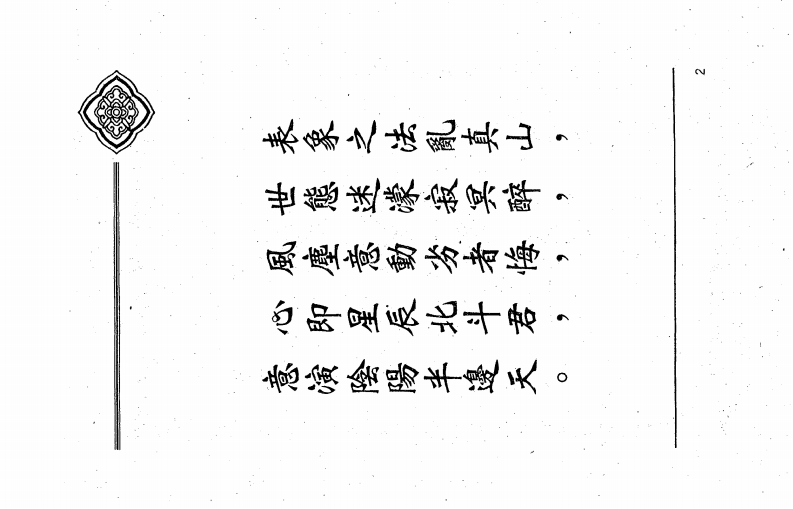 2
表象之法亂真山，
世態迷濛寂冥醉，
風塵意動劣者悔，
心即星辰北斗君，
意演陰陽半邊天。